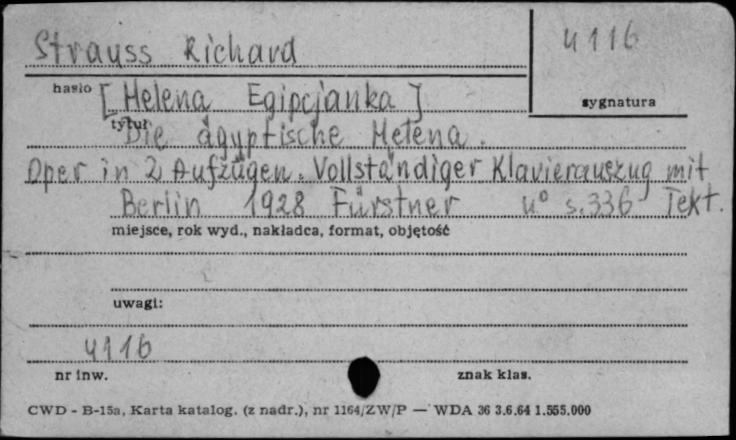 Strauss Richard
4116
hasło [Helena Egipcjanka]
sygnatura
tytuł Die ägyptische Helena.
Oper in 2 Aufzügen. Vollständiger Klavierauszug mit
Berlin 1928 Fürstner 4° s. 336 Tekt.
miejsce, rok wyd., nakładca, format, objętość
uwagi:
4116
nr inw.
znak klas.
CWD - B-15a, Karta katalog. (z nadr.), nr 1164/ZW/P — WDA 36 3.6.64 1.555.000